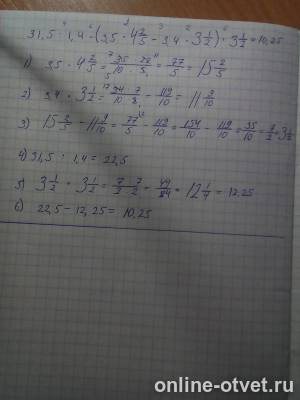 31,5 : 1,4 - (3,5 · 4 2/5 - 3,4 · 3 1/2) · 3 1/2 = 10,25
1) 3,5 · 4 2/5 = 35/10 · 22/5 = 77/5 = 15 2/5
2) 3,4 · 3 1/2 = 34/10 · 7/2 = 119/10 = 11 9/10
3) 15 2/5 - 11 9/10 = 77/5 - 119/10 = 154/10 - 119/10 = 35/10 = 7/2 = 3 1/2
4) 31,5 : 1,4 = 22,5
5) 3 1/2 · 3 1/2 = 7/2 · 7/2 = 12 1/4 = 12,25
6) 22,5 - 12,25 = 10,25
online-otvet.ru